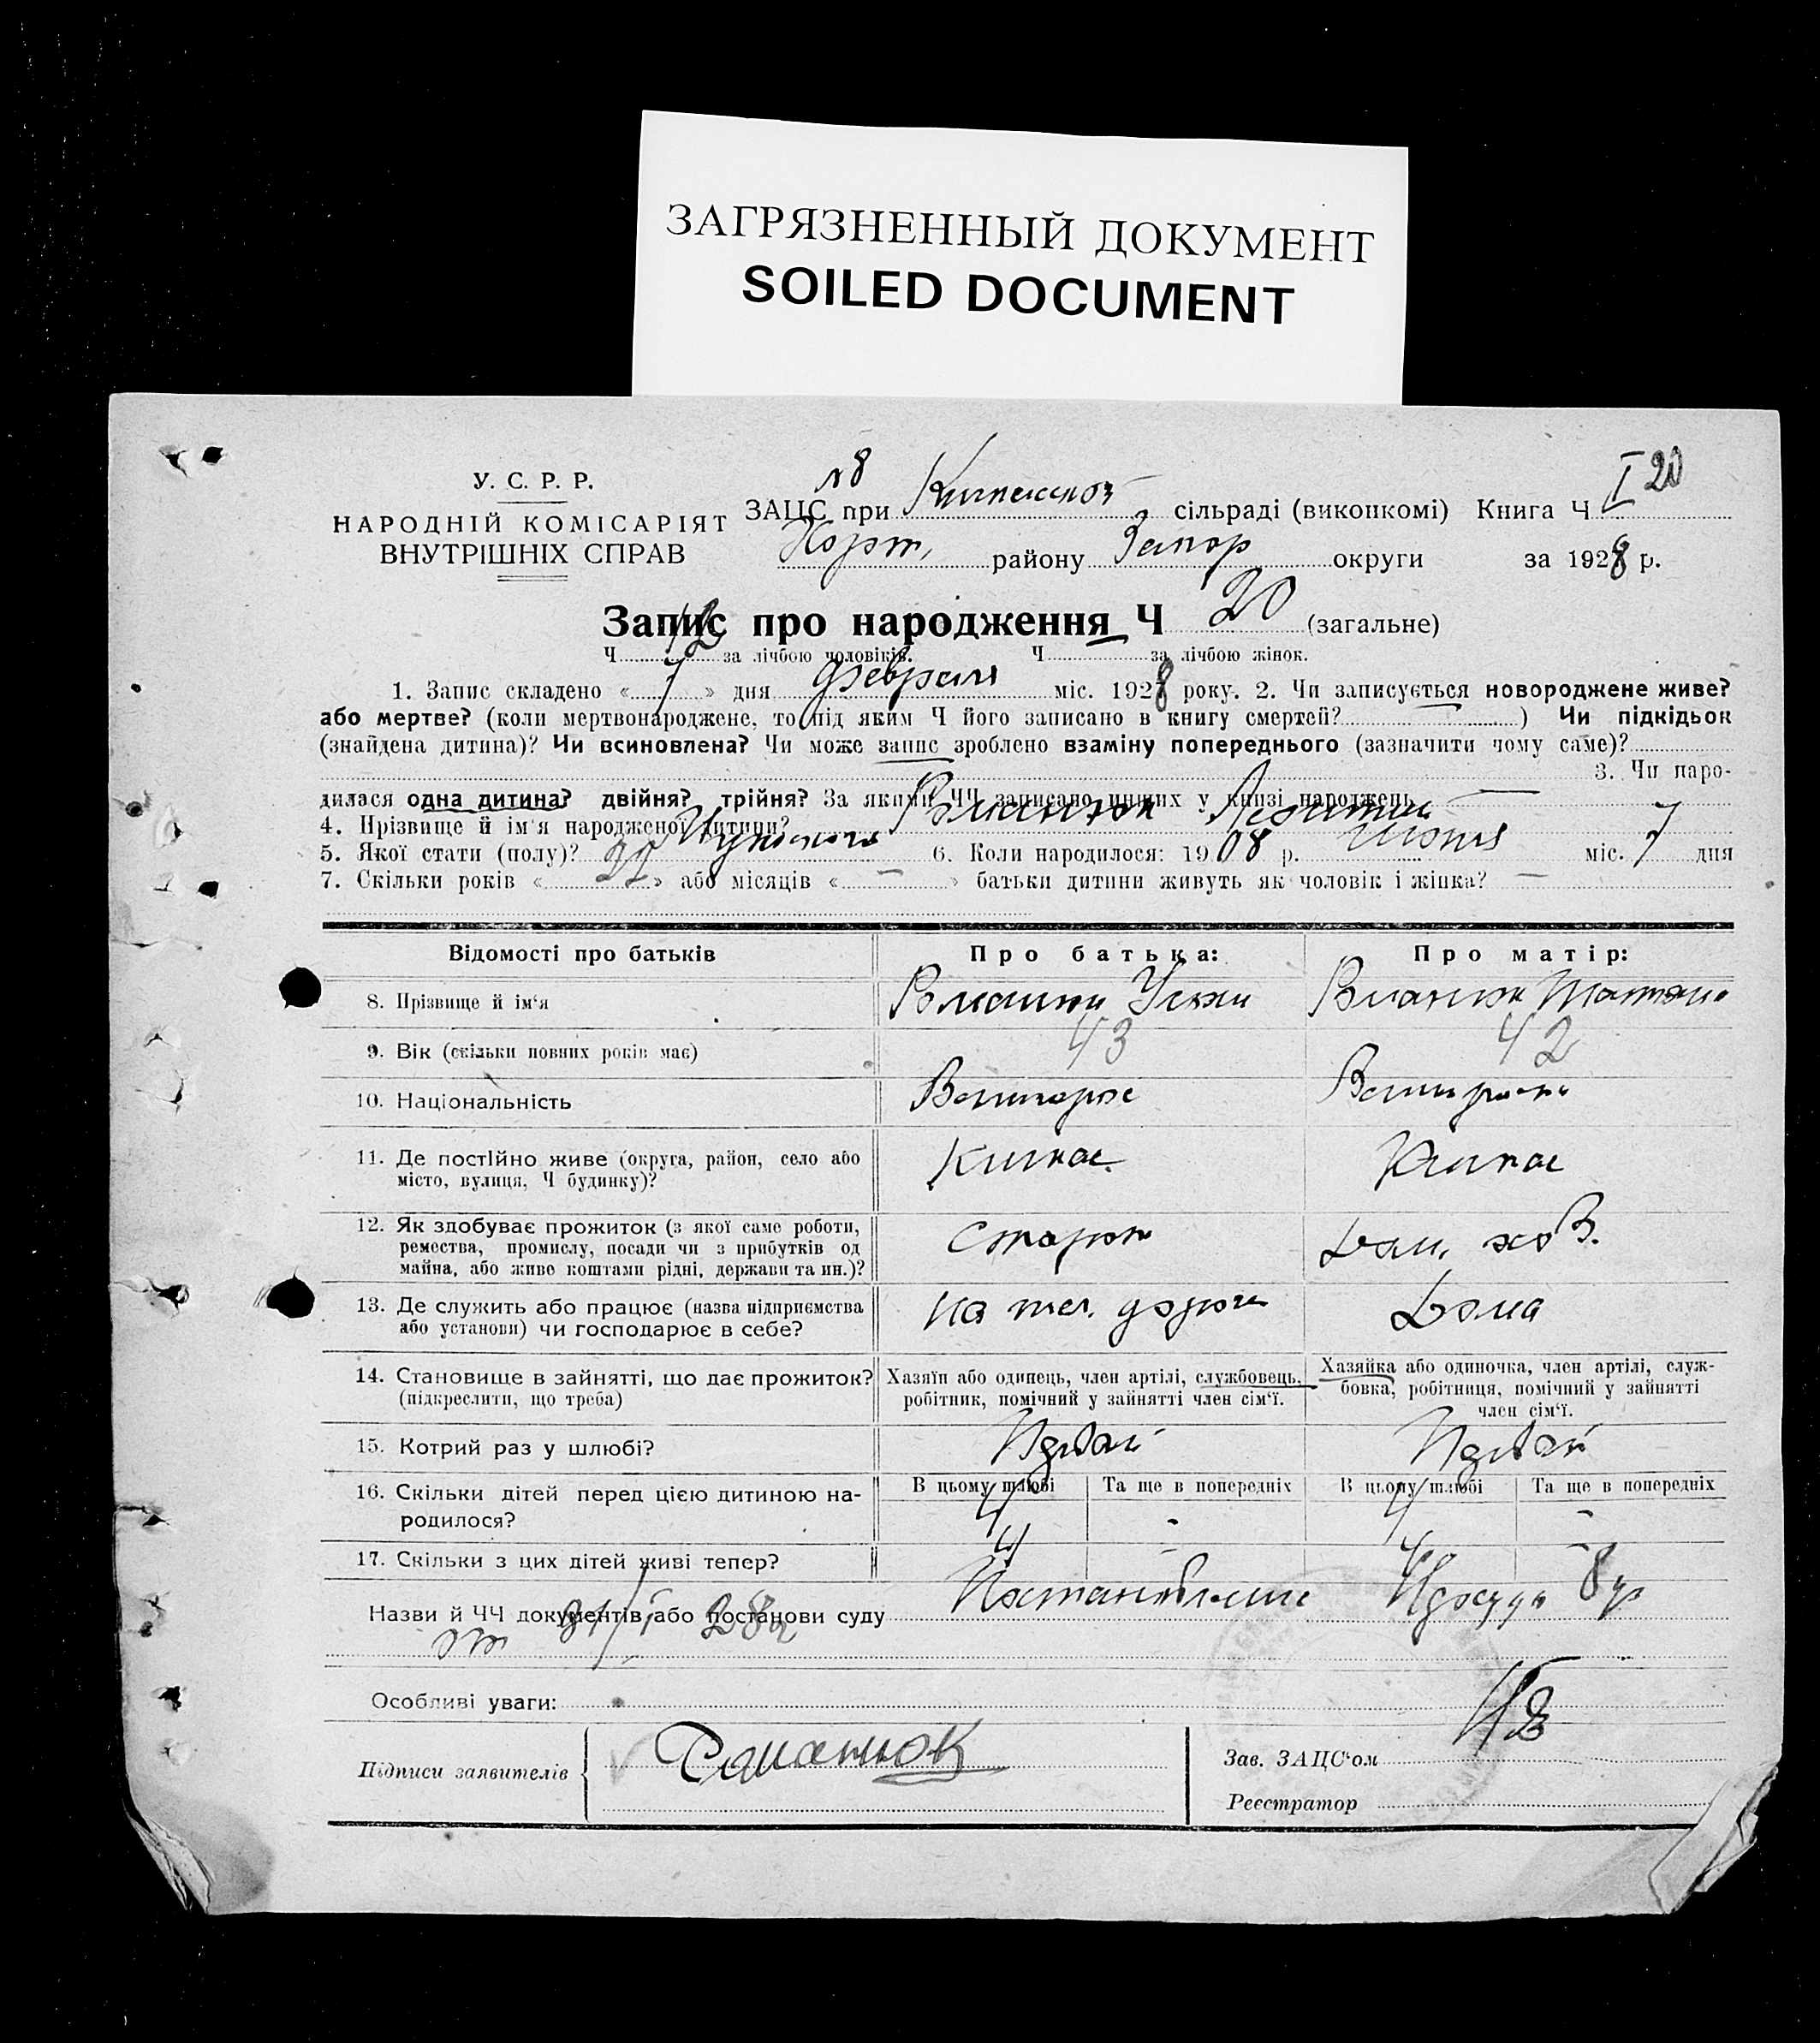 ЗАГРЯЗНЕННЫЙ ДОКУМЕНТ
SOILED DOCUMENT
У. С. Р. Р.
НАРОДНІЙ КОМІСАРІЯТ
ВНУТРІШНІХ СПРАВ
№8
ЗАЦС при сільраді (виконкомі) Книга Ч I 20
Хорт, району Запор округи за 1928 р.
Запис про народження Ч 20 (загальне)
Ч 12 за лічбою чоловіків. Ч за лічбою жінок.
1. Запис складено « 7 » дня февраля міс. 1928 року. 2. Чи записується новороджене живе?
або мертве? (коли мертвонароджене, то під яким Ч його записано в книгу смертей? ) Чи підкідьок
(знайдена дитина)? Чи всиновлена? Чи може запис зроблено взаміну попереднього (зазначити чому саме)?
3. Чи наро-
дилася одна дитина? двійня? трійня? За якими ЧЧ записано инших у книзі народжень —
4. Прізвище й ім'я народженої дитини? Романюк
5. Якої стати (полу)? Мужского 6. Коли народилося: 1908 р. міс. 7 дня
7. Скільки років « 22 » або місяців « — » батьки дитини живуть як чоловік і жінка? —
Відомості про батьків
Про батька:
Про матір:
8. Прізвище й ім'я
Романюк
Романюк Татяна
9. Вік (скільки повних років має)
43
42
10. Національність
11. Де постійно живе (округа, район, село або
місто, вулиця, Ч будинку)?
Кичкас
Кичкас
12. Як здобуває прожиток (з якої саме роботи,
ремества, промислу, посади чи з прибутків од
майна, або живе коштами рідні, держави та ин.)?
Сторож
Дом. хоз.
13. Де служить або працює (назва підприємства
або установи) чи господарює в себе?
На жел. дороге
Дома
14. Становище в зайнятті, що дає прожиток?
(підкреслити, що треба)
Хазяїн або одинець, член артілі, службовець,
робітник, помічний у зайнятті член сім'ї.
Хазяйка або одиночка, член артілі, служ-
бовка, робітниця, помічний у зайнятті
член сім'ї.
15. Котрий раз у шлюбі?
Первый
Первый
16. Скільки дітей перед цією дитиною на-
родилося?
В цьому шлюбі Та ще в попередніх
В цьому шлюбі Та ще в попередніх
4 -
4 -
17. Скільки з цих дітей живі тепер?
4 -
4 -
Назви й ЧЧ документів або постанови суду Постановление Нарсуда 8 уч
от 31/I 28
Особливі уваги:
Підписи заявителів
Романюк
Зав. ЗАЦС'ом
Реєстратор